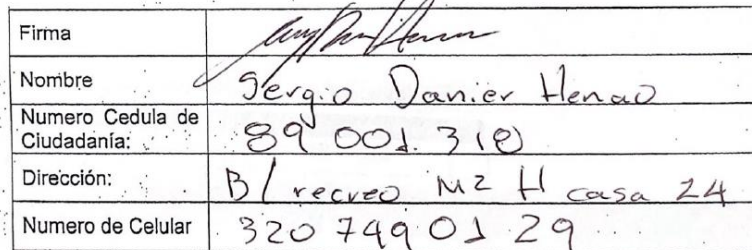 Firma
Nombre Sergio Danier Henao
Numero Cedula de
Ciudadanía: 89 001. 318
Dirección: B/ recreo Mz H casa 24
Numero de Celular 320 749 01 29